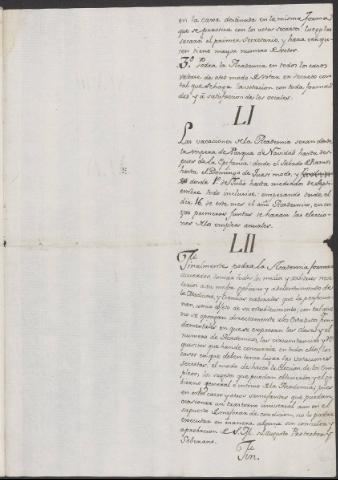 en la caxa destinada en la misma forma
que se practica con los votos secretos: luego los
sacará el primer Secretario, y hará eleccion
en quien tiene mayor numero de votos.
3º Podrá la Academia en todos los casos
valerse de otro modo de votar en secreto con
tal que se haga la votacion con toda formali-
dad y á satisfaccion de los vocales.
LI
Las vacaciones de la Academia seran desde
la vispera de Pasqua de Navidad hasta des-
pues de la Epifania: desde el Sabado de Ramos
hasta el Domingo de Quasimodo, y
desde 1º de Julio hasta mediados de Septi-
embre todo inclusive: empezando desde el
dia 16 de este mes el año Academico, en cu-
yas primeras juntas se haran las eleccio-
nes de los empleos anuales.
LII
Finalmente podrá la Academia formar
acuerdos sobre todos los medios y
á su mejor gobierno y adelantamiento de
la Medicina, y Ciencias naturales que la
como objeto de su establecimiento; con tal que
no se opongan directamente á los Estatutos fun-
damentales en que se expresan las clases y el
numero de Academicos, las circunstancias y re-
quisitos que han de concurrir en todos ellos: los
casos en que deben tener lugar las votaciones
secretas, el modo de hacer la eleccion de los em-
pleos, los sugetos que puedan obtenerlos y el go-
bierno general é interno de la Academia; pues
en estos casos y otros semejantes que puedan
ocasionar un trastorno universal aun en el
supuesto de mejorar de condicion, no se podrá
executar en manera alguna sin consulta y
aprobacion de S. M. su Augusto Protector y
Soberano.
Fin.